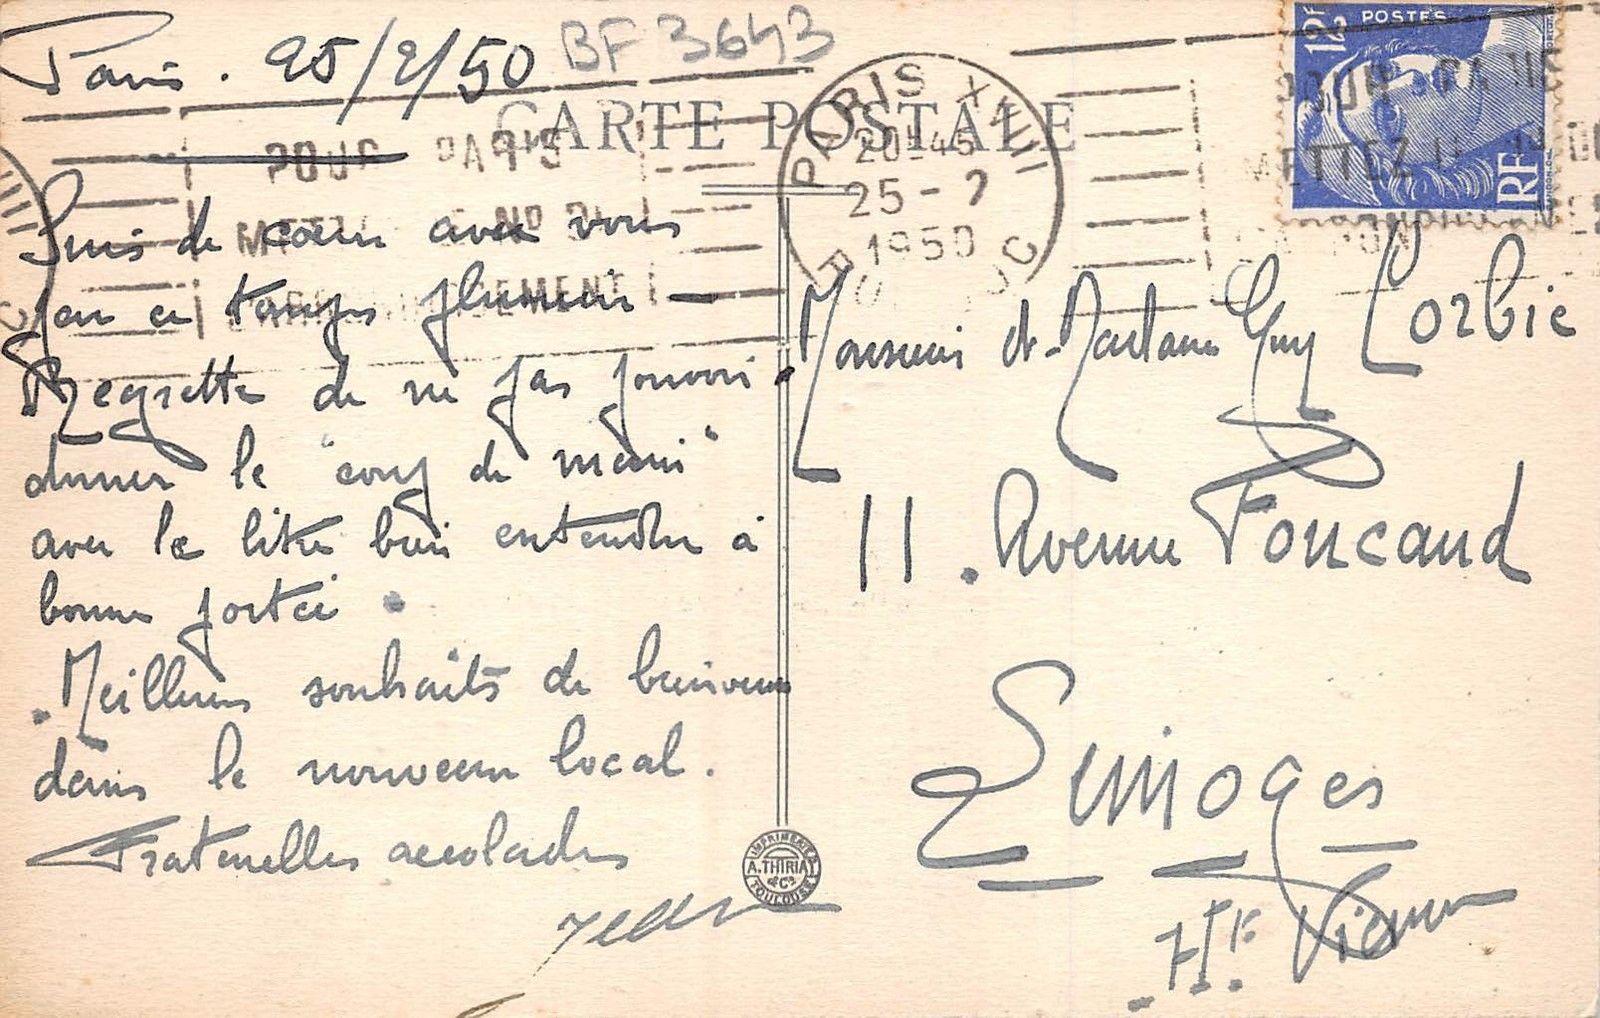 Paris. 25/2/50
BF 3643
CARTE POSTALE
POUR PARIS
METTEZ LE N° DE
L'ARRONDISSEMENT
PARIS XVIII
20H45
25-2
1950
POSTES
12f
RF
POUR PARIS
METTEZ
Suis de coeur avec vous
en ce temps
Regrette de ne pas pouvoir
donner le "coup de main"
avec le litre bien entendu à
bonne portée.
Meilleurs souhaits de bienvenue
dans le nouveau local.
Fraternelles accolades
Jean
Monsieur et Madame Guy Corbie
11. Avenue Foucaud
Limoges
Hte Vienne
IMPRIMERIE
A. THIRIAT
& Cie
TOULOUSE